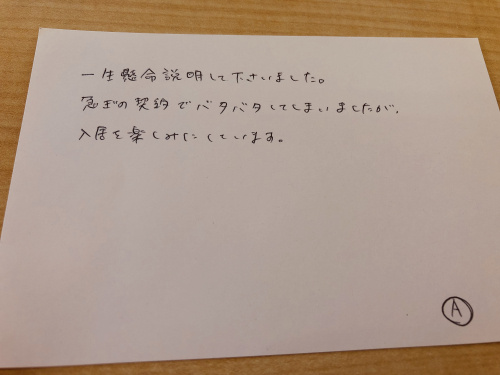 一生懸命説明して下さいました。
急ぎの契約でバタバタしてしまいましたが、
入居を楽しみにしています。
A